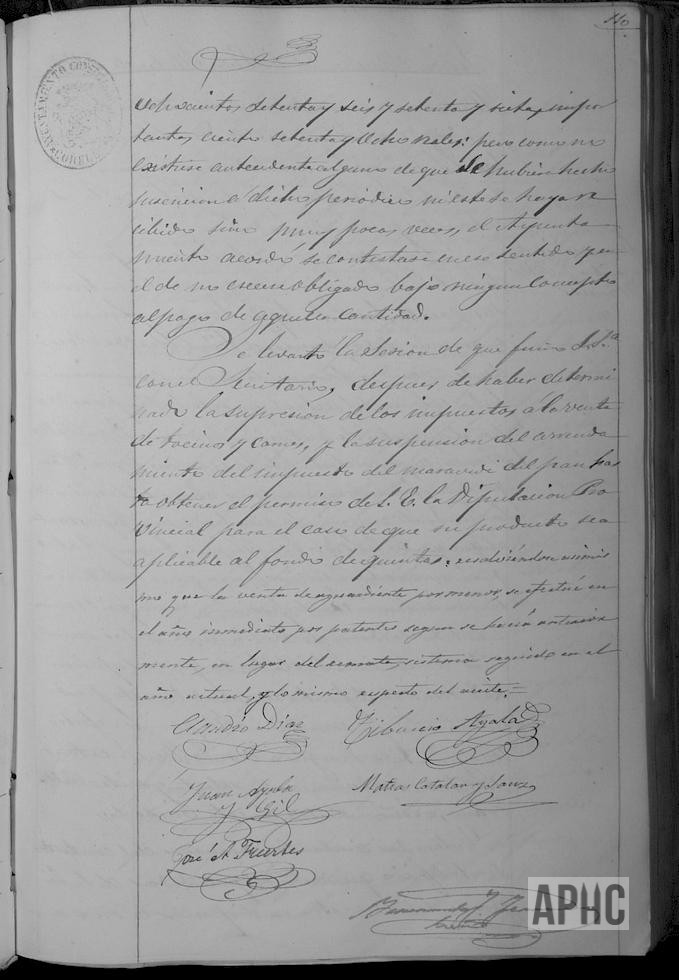 110
ochocientos setenta y seis y setenta y siete, impor
tantes ciento setenta y ocho reales: pero como no
existiese antecedente alguno de que se hubiera hecho
suscricion á dicho periódico ni este se haya re
cibido sino muy pocas veces, el Ayunta
miento acordó se contestase en ese sentido y en
el de no creerse obligado bajo ningun concepto
al pago de aquella cantidad.
Se levantó la sesion de que firmó S. Sª
con el Secretario, despues de haber determi
nado la supresion de los impuestos á la venta
de tocino y carnes, y la suspension del arrenda
miento del impuesto del maravedi del pan has
ta obtener el permiso de S. E. la Diputacion Pro
vincial para el caso de que su producto sea
aplicable al fondo de quintas: resolviéndose asimis
mo que la venta de aguardiente por menor, se efectué en
el año inmediato por patentes segun se hacia anterior
mente, en lugar del remate, sistema seguido en el
año actual, y lo mismo respecto del aceite.=
Claudio Diaz Tiburcio Ayala
Juan Ayala
y Gil
Matias Catalan y Sanz
José A. Fuertes
APHC